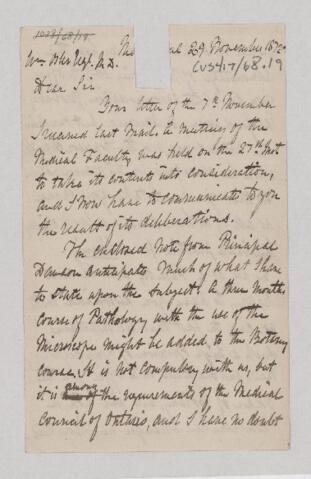 1023/68/19
29 November 1872
CUS417/68.19
Wm Osler Esq. M.D.
Dear Sir
Your letter of the 7th November
I received last Mail. A meeting of the
Medical Faculty was held on the 27th Inst
to take its contents into consideration,
and I now have to communicate to you
the result of its deliberations.
The enclosed note from Principal
Dawson anticipates much of what I have
to state upon the subject. A three months
course of Pathology with the use of the
Microscope might be added to the Botany
course. It is not compulsory with us, but
it is among the requirements of the Medical
Council of Ontario, and I have no doubt